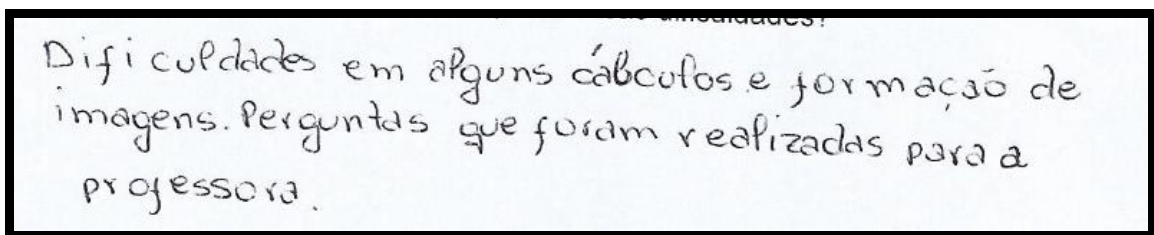 Dificuldades em alguns cálculos e formação de
imagens. Perguntas que foram realizadas para a
professora.